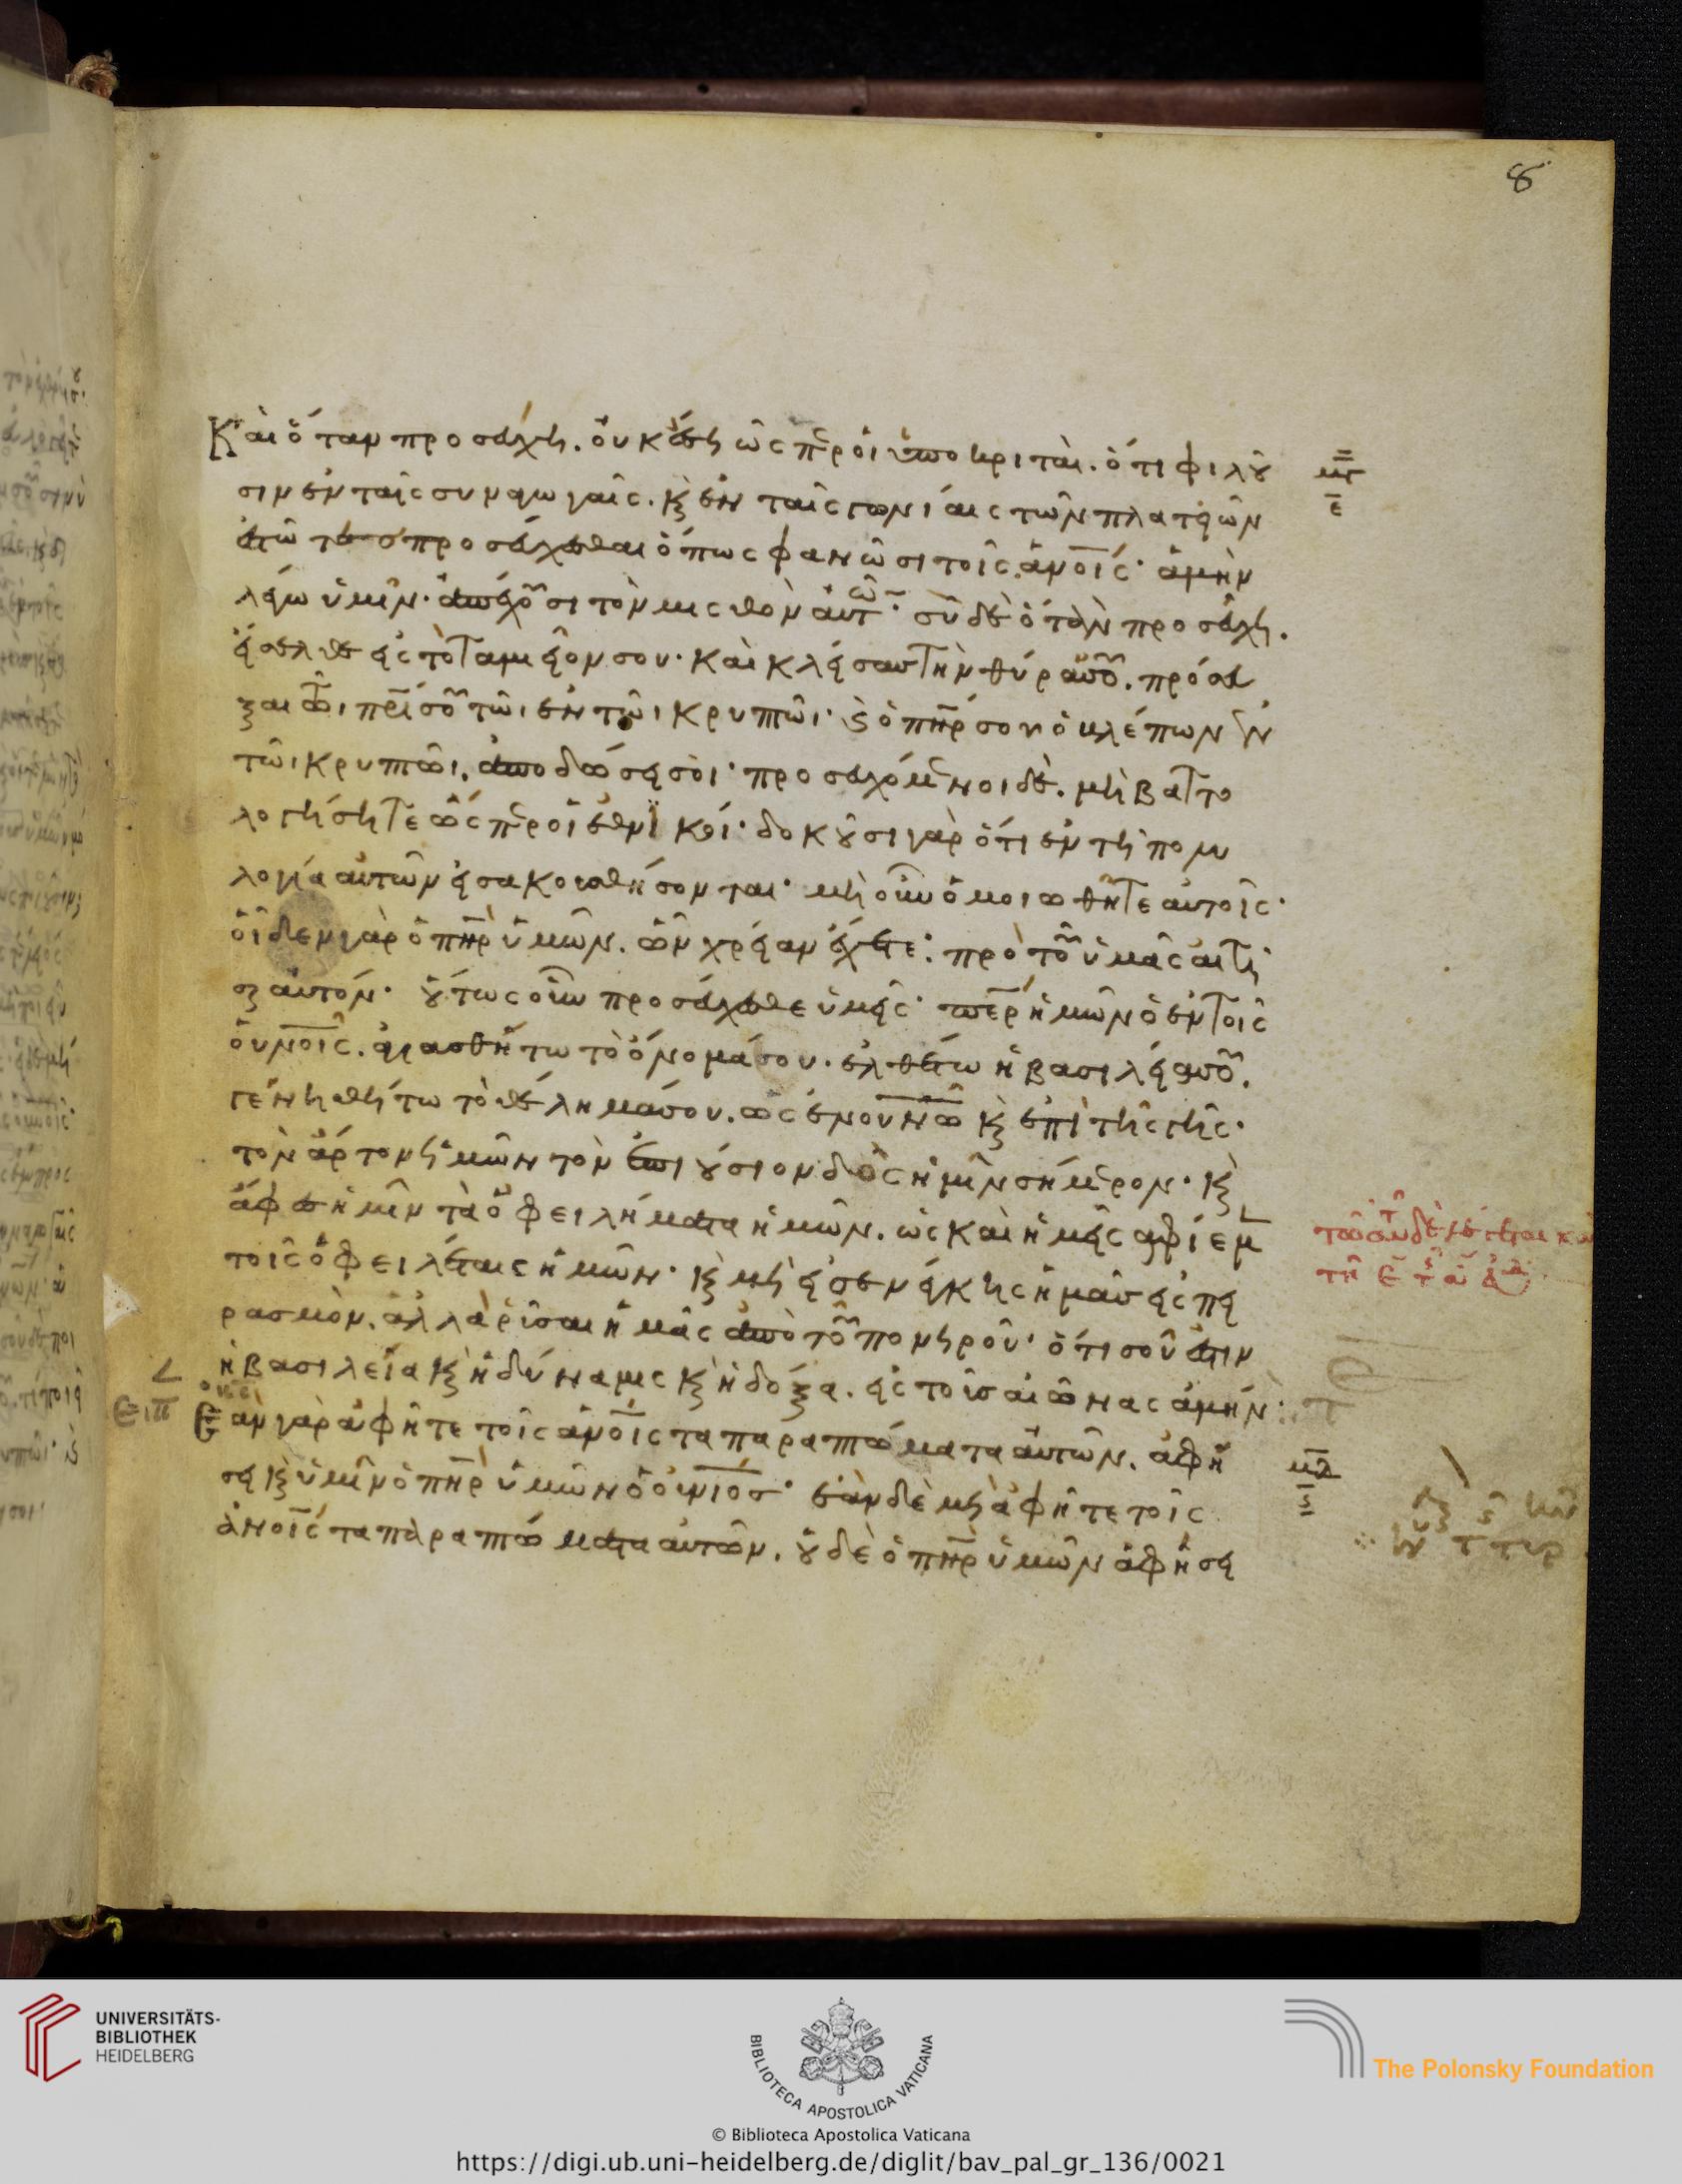 8
Καὶ ὅταν προσεύχη. οὐκ έση ὡςπερ οἱ ὑποκριταί. ὅτι φιλοῦ
σιν ἐν ταῖς συναγωγαῖς. κ ἐν ταῖς γωνίαις τῶν πλατειῶν
ἑστῶτες προσεύχεσθαι ὅπως φανῶσι τοῖς ἀνοις· ἀμὴν
λέγω ὑμῖν· ἀπέχουσι τὸν μισθὸν αὐτῶν· σὺ δὲ ὅταν προσεύχη.
εἴσελθε εἰς τὸ ταμιεῖόν σου· καὶ κλείσας τὴν θύραν σου. πρόσευ
ξαι τῶι πρί σου τῶι ἐν τῶι κρυπτῶι· κ ὁ πηρ σου ὁ βλέπων ἐν
τῶι κρυπτῶι. ἀποδώσει σοι· προσευχόμενοι δὲ. μὴ βαττο
λογήσητε ὥςπερ οἱ ἐθνϊκοί· δοκοῦσι γὰρ ὅτι ἐν τῆ πολυ
λογία αὐτῶν εἰσακουσθήσονται· μὴ οὖν ὁμοιωθῆτε αὐτοῖς·
οἶδεν γὰρ ὁ πηρ ὑμῶν. ὧν χρείαν ἔχετε· πρὸ τοῦ ὑμᾶς αἰτῆ
σαι αὐτόν· οὕτως οὖν προσεύχεσθε ὑμεῖς· περ ἡμῶν ὁ ἐν τοῖς
οὐνοῖς. ἁγιασθήτω τὸ ὄνομά σου. ἐλθέτω ἡ βασιλεία σου.
γενηθήτω τὸ θέλημά σου. ὡς ἐν οὐνῶ κ ἐπὶ τῆς γῆς·
τὸν ἄρτον ἡμῶν τὸν ἐπιούσιον δὸς ἡμῖν σήμερον· κ
ἄφες ἡμῖν τὰ ὀφειλήματα ἡμῶν. ὡς καὶ ἡμεῖς ἀφίεμ
τοῖς ὀφειλέταις ἡμῶν· κ μὴ εἰσενέγκης ἡμᾶς εἰς πει
ρασμόν. ἀλλὰ ρῦσαι ἡμᾶς ἀπὸ τοῦ πονηροῦ· ὅτι σοῦ ἐστιν
ἡ βασιλεία κ ἡ δύναμις κ ἡ δόξα. εἰς τοὺς αἰῶνας ἀμήν·
Ἐὰν γὰρ ἀφῆτε τοῖς ἀνοις τὰ παραπτώματα αὐτῶν. ἀφή
σει κ ὑμῖν ὁ πηρ ὑμῶν ὁ οὐνιος· ἐὰν δὲ μὴ ἀφῆτε τοῖς
ἀνοις τὰ παραπτώματα αὐτῶν. οὐδὲ ὁ πηρ ὑμῶν ἀφήσει
μγ
ε
μδ
ς
UNIVERSITÄTS-
BIBLIOTHEK
HEIDELBERG
BIBLIOTECA APOSTOLICA VATICANA
The Polonsky Foundation
© Biblioteca Apostolica Vaticana
https://digi.ub.uni-heidelberg.de/diglit/bav_pal_gr_136/0021